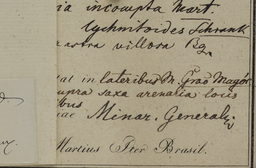 ia incompta Mart.
Lychnitoides Schrank
astra villosa Bg.
at in lateribus M. Grao Magor
upra saxa arenalia locis
bus
iae Minar. General
Martius Iter Brasil.